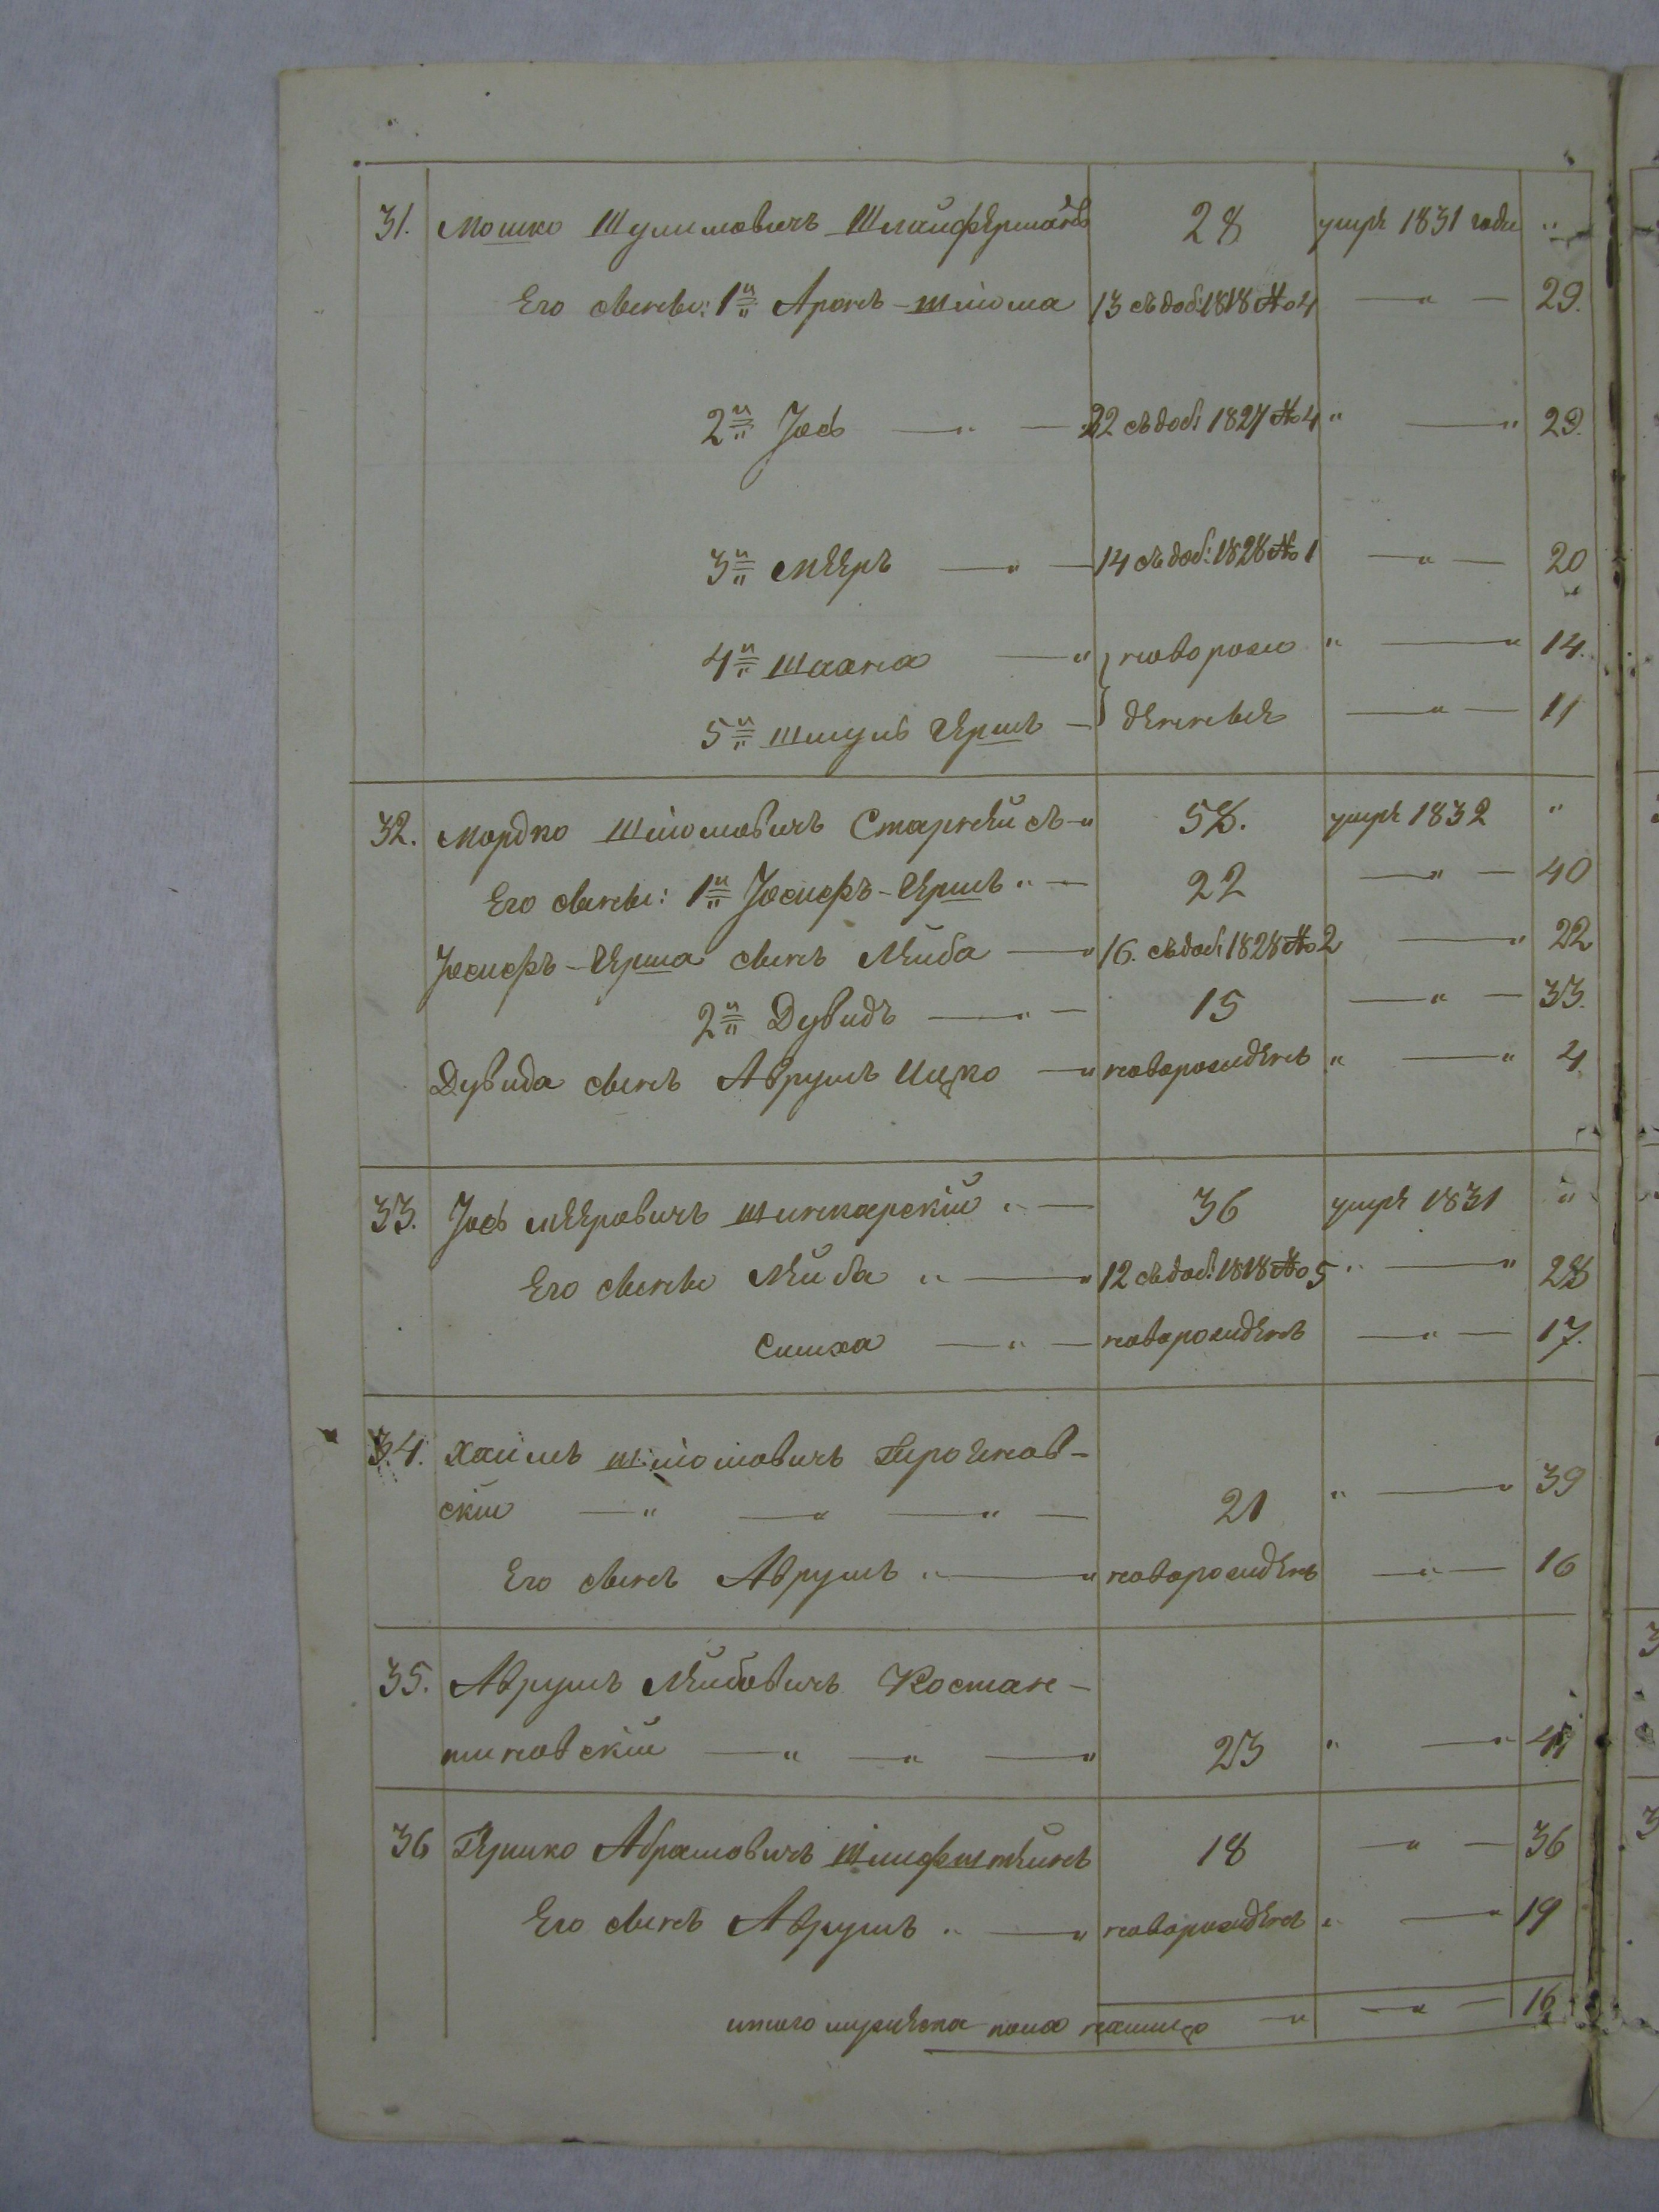 31. Мошко Шулимовичъ Шлайферманъ 28 умре 1831 года "
Его сыны: 1й Аронъ-Шліома 13 съ доб: 1818 № 4 — " — 29.
2й Іось — " — 22 съ доб: 1827 № 4 " — " 29.
3й Мееръ — " — 14 съ доб: 1828 № 1 — " — 20
4й Шахна — " новорож " — " 14.
5й Шмуль Гершъ — денные — " — 11
32. Мордко Шліомовичъ — " 58. умре 1832 "
Его сыны: 1й Іосифъ-Гершъ " — 22 — " — 40
Іосифъ-Герша сынъ Лейба — " 16. съ доб: 1828 № 2 — " 22
2й Дувидъ — " — 15 — " — 33.
Дувида сынъ Аврумъ Ицко — " новорожденъ " — " 4
33. Іось Мееровичъ Шинкарскій " — 36 умре 1831 "
Его сыны Лейба " — " 12 съ доб: 1818 № 5 " — " 28
Симха — " — новорожденъ — " — 17.
34. Хаимъ Шліомовичъ
скій — " — " — " — 21 " — " 39
Его сынъ Аврумъ " — " новорожденъ — " — 16
35. Аврумъ Лейбовичъ Костан-
тиновскій — " — " — " 23 " — " 41
36 Гершко Абрамовичъ 18 — " — 36
Его сынъ Аврумъ " — " новорожденъ " — " 19
итого мужеска пола налицо — " — " — 16